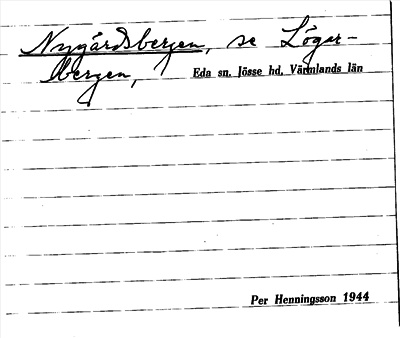 Nygårdsbergen, se Lögar-
bergen, Eda sn. Jösse hd, Värmlands län
Per Henningsson 1944